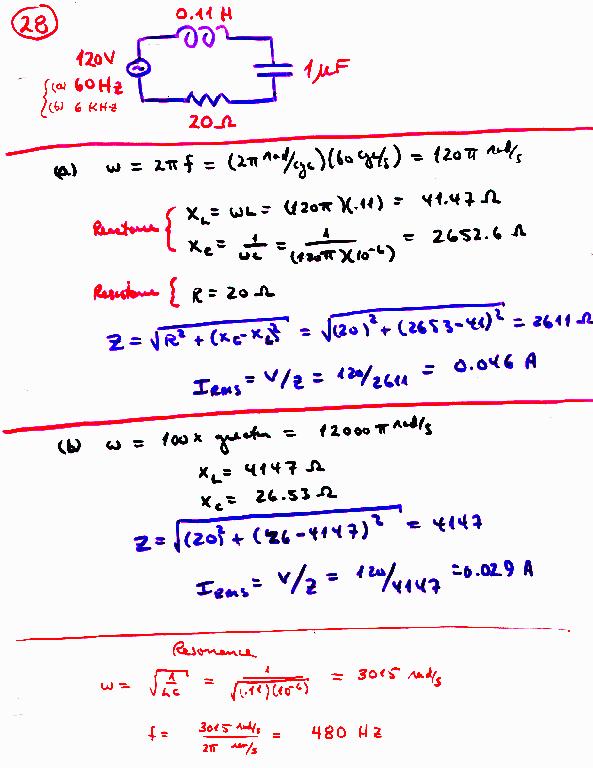 28
0.11 H
120V
(a) 60 Hz
(b) 6 KHz
1 μF
20 Ω
(a) ω = 2πf = (2π rad/cyc)(60 cyc/s) = 120π rad/s
Reactance { X_L = ωL = (120π)(.11) = 41.47 Ω
X_C = 1/ωC = 1/(120π)(10^-6) = 2652.6 Ω
Resistance { R = 20 Ω
Z = √R² + (X_C - X_L)² = √(20)² + (2653-41)² = 2611 Ω
I_RMS = V/Z = 120/2611 = 0.046 A
(b) ω = 100x greater = 12000π rad/s
X_L = 4147 Ω
X_C = 26.53 Ω
Z = √(20)² + (26-4147)² = 4147
I_RMS = V/Z = 120/4147 = 0.029 A
Resonance
ω = √1/LC = 1/√(.11)(10^-6) = 3015 rad/s
f = 3015 rad/s / 2π = 480 Hz